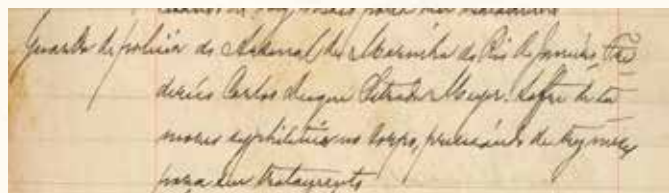 para seu tratamento
Guarda de policia do Arsenal de Marinha do Rio de Janeiro Fre
derico Carlos Duque Estrada Meyer. Soffre de tu
mores syphiliticos no corpo, precisando de tres mezes
para seu tratamento